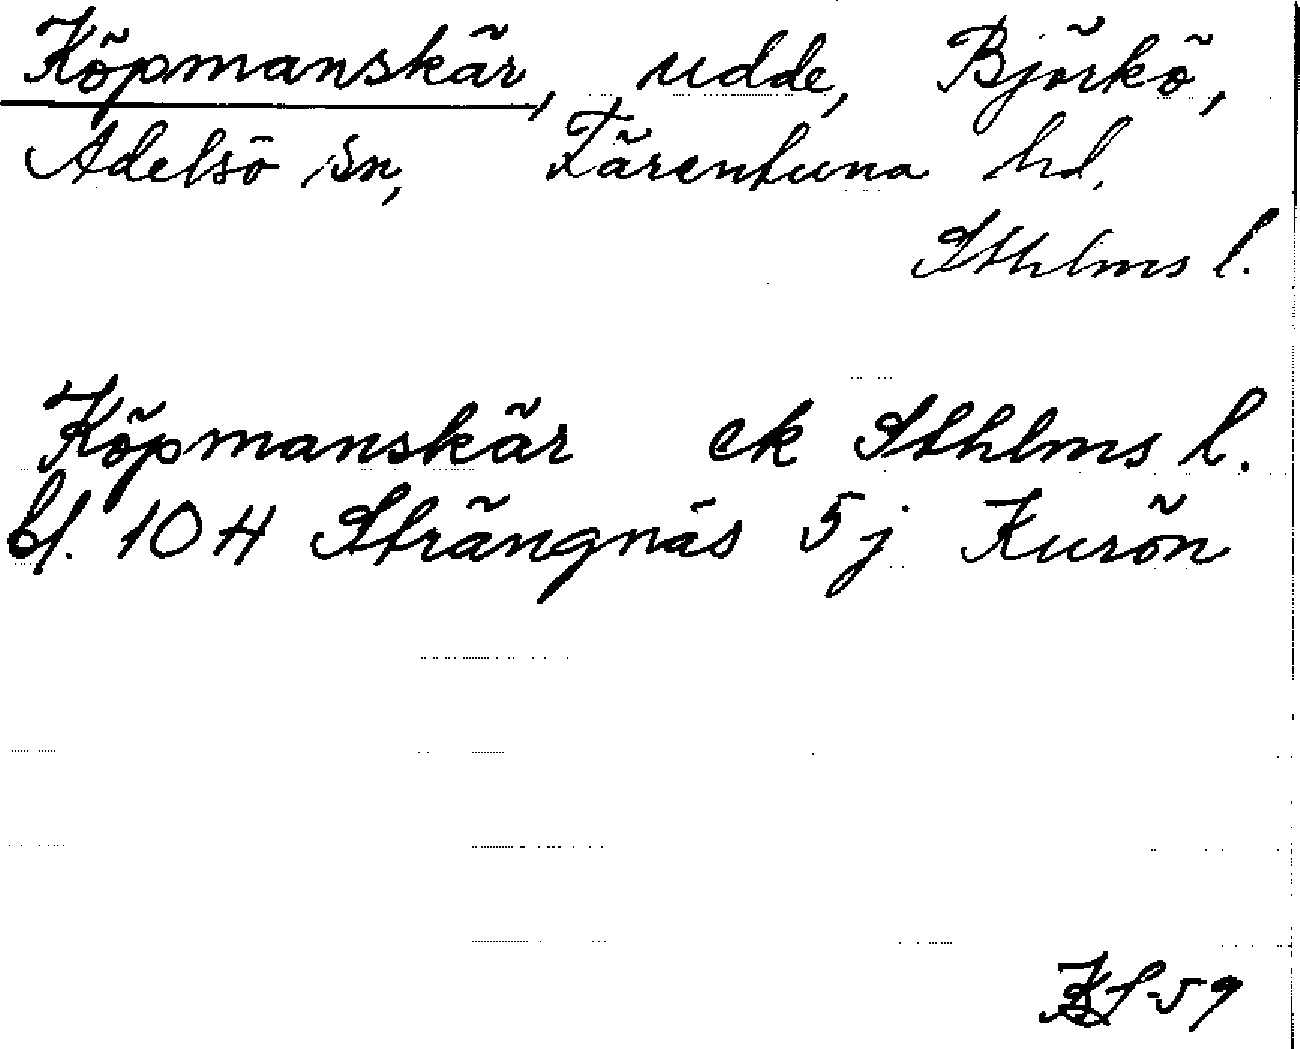 Köpmanskär, udde, Björkö,
Adelsö sn, Färentuna hd.
Sthlms l.
Köpmanskär ek Sthlms l.
bl. 10 H Strängnäs 5 j Kurön
-59